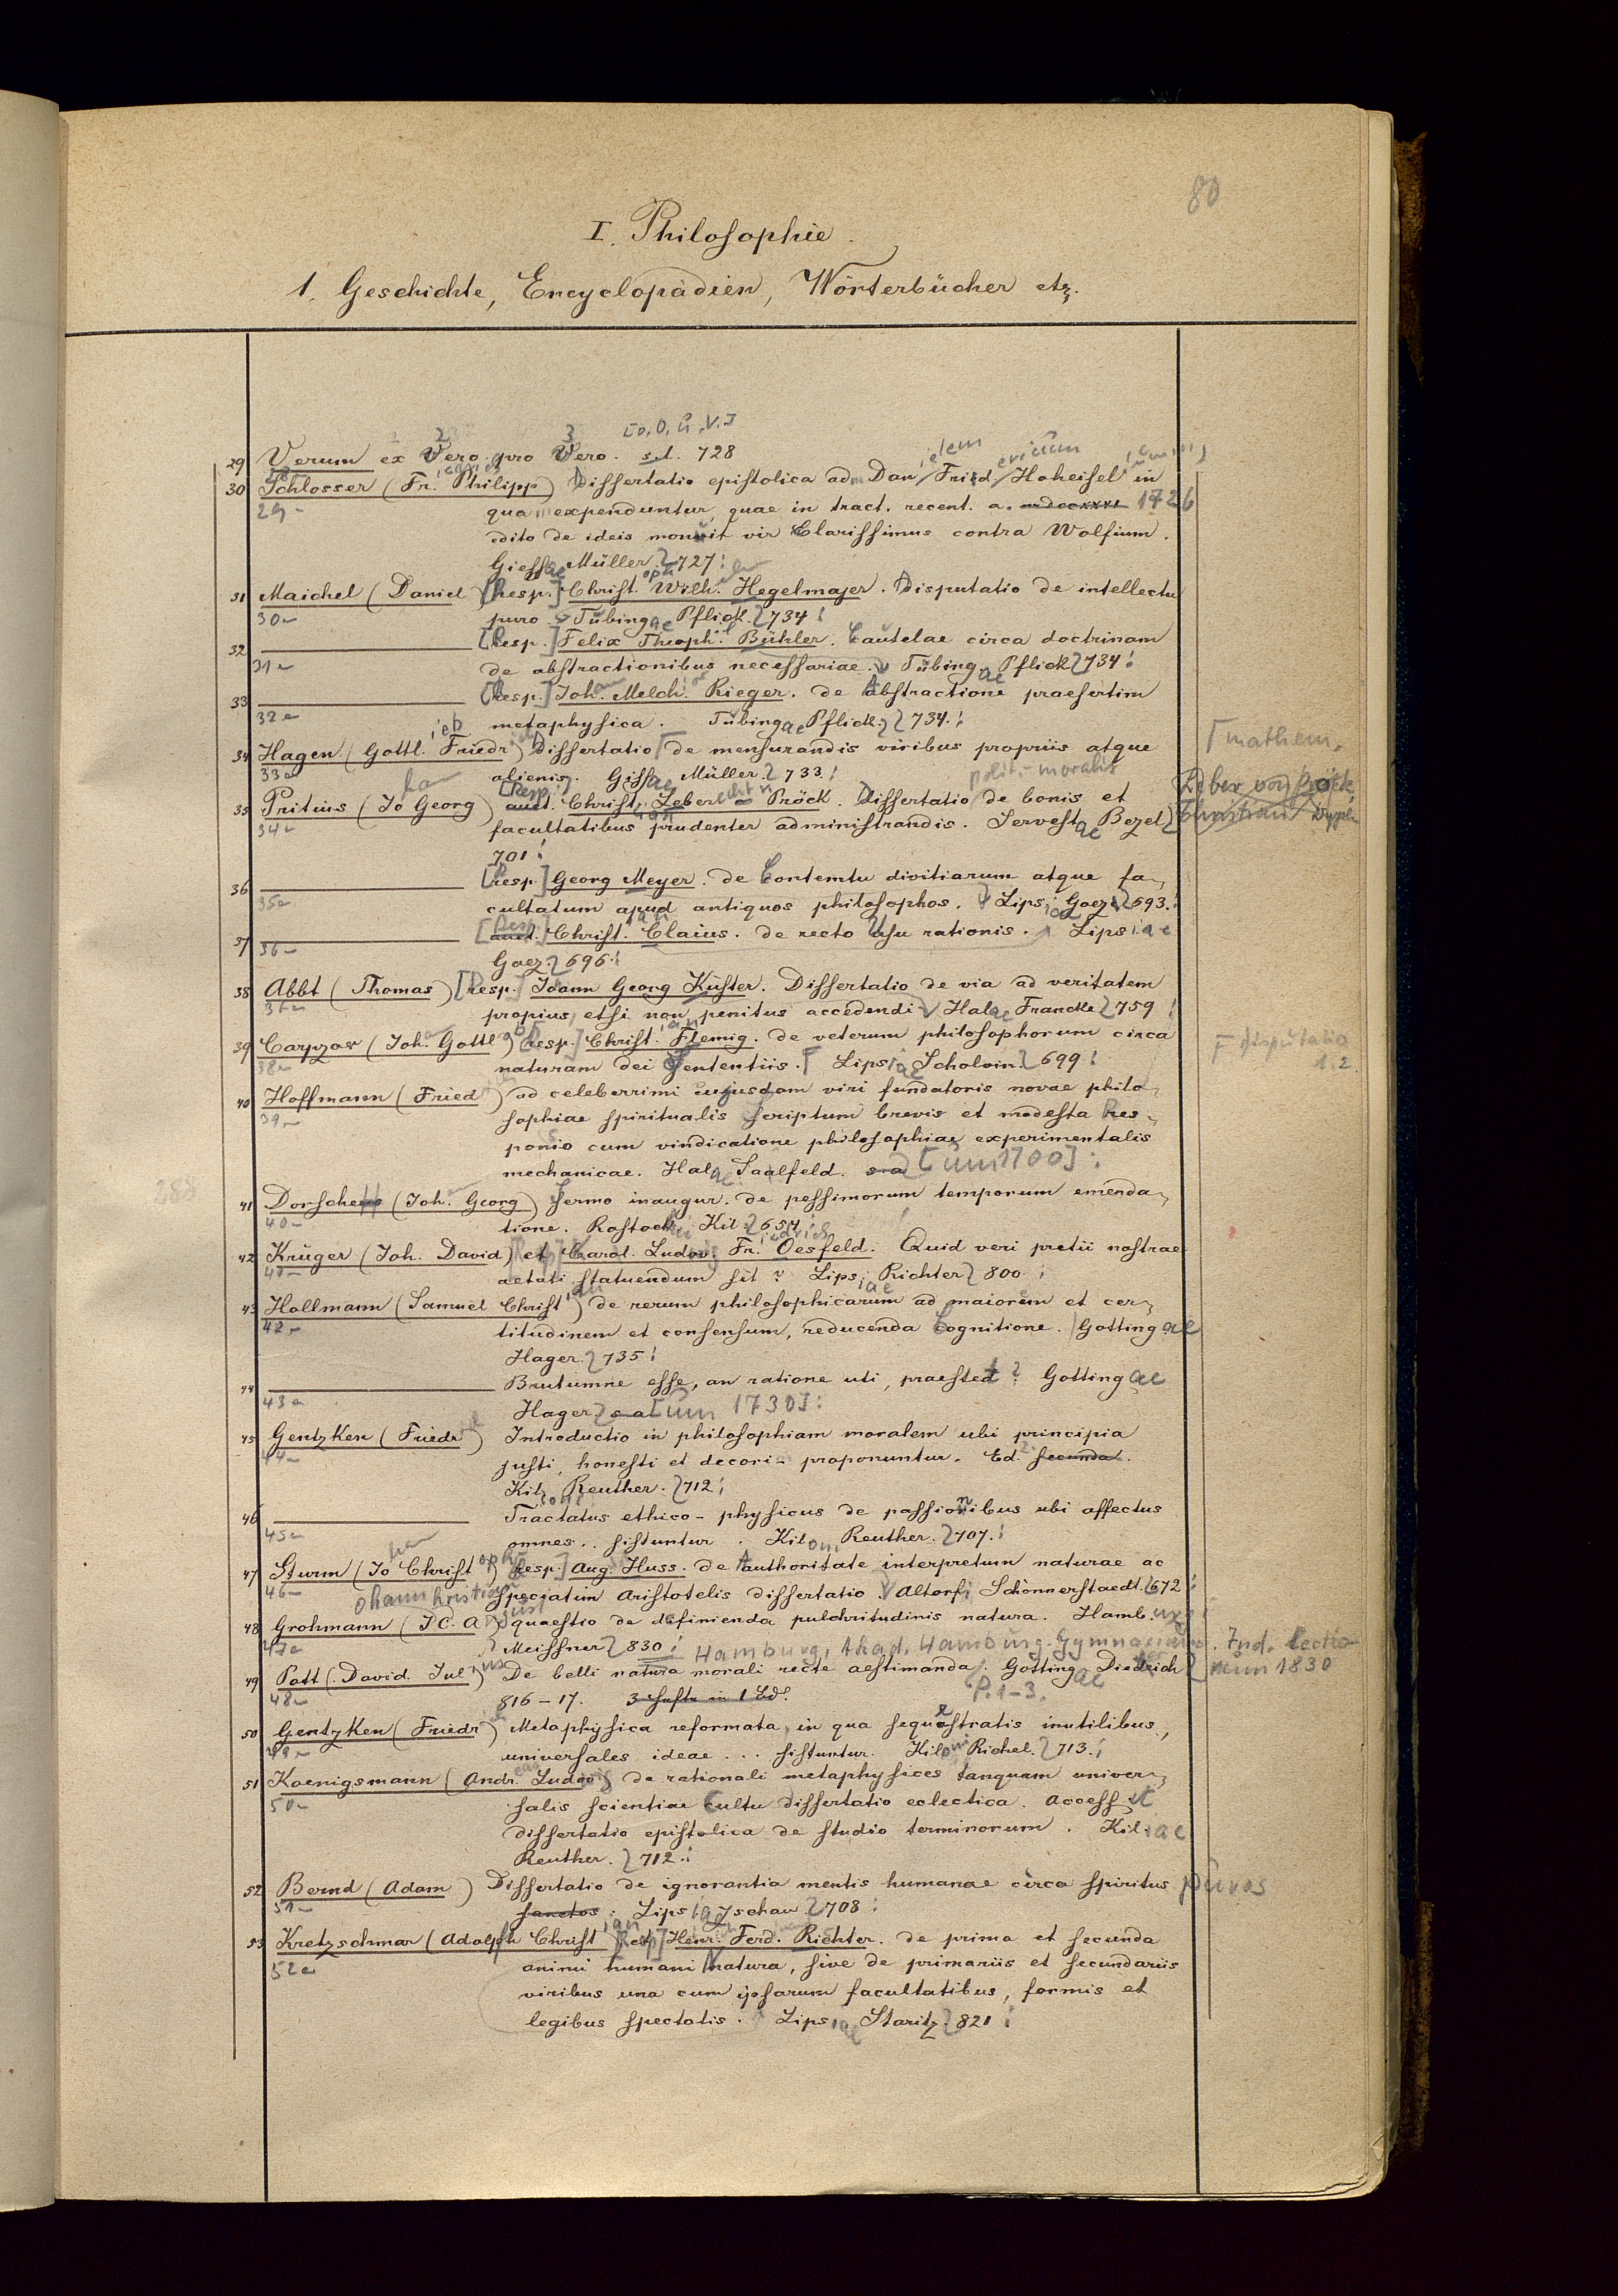 80
I. Philosophie.
1. Geschichte, Encyclopädien, Wörterbücher etz.
[o. O. u. V.]
29 Verum ex Vero pro Vero. s.l. 728
30 Schlosser (Fr. Philipp) Dissertatio epistolica ad Danielem Fridericum Hoheisel in
29 qua expenduntur quae in tract. recent. a. mdccxxvi 1726
edito de ideis monuit vir Clarissimus contra Wolfium.
Giessae Müller 727
31 Maichel (Daniel) [Resp.] Christoph Wilh. Hegelmajer. Disputatio de intellectu
30 puro. Tubingae Pflick. 734
32 [Resp.] Felix Theoph. Bühler. Cautelae circa doctrinam
31 de abstractionibus necessariae. Tübingae Pflick 734
33 [Resp.] Joh. Melch. Rieger. de Abstractione praesertim
32 metaphysica. Tubingae Pflick. 734.
34 Hagen (Gottlieb Friedr) Dissertatio de mensurandis viribus propriis atque mathem.
33 alienis. Gissae Müller. 733.
polit.-moralis
35 Pritius (Johan Georg) [Resp.] auct. Christ. Leberecht von Pröck. Dissertatio de bonis et
34 facultatibus prudenter administrandis. Servestae Bezel
701
36 [Resp.] Georg Meyer. de Contemtu divitiarum atque fa-
35 cultatum apud antiquos philosophos. Lipsiae Goez 693.
37 [Resp.] auct. Christian Claius. de recto Usu rationis. Lipsiae
36 Goez. 696
38 Abbt (Thomas) [Resp.] Ioann Georg Küster. Dissertatio de via ad veritatem
37 propius, etsi non penitus accedendi Halae Francke 759
39 Carpzov (Joh. Gottlob) [Resp.] Christian Flemig. de veterum philosophorum circa disputatio
38 naturam dei Sententiis. Lipsiae Scholvin 699 1.2.
40 Hoffmann (Fried) ad celeberrimi cujusdam viri fundatoris novae philo-
39 sophiae spiritualis Scriptum brevis et modesta Res-
ponsio cum vindicatione philosophiae experimentalis
mechanicae. Halae Saalfeld. s.a. [um 1700]
288
41 Dorsche (Joh. Georg) Sermo inaugur. de pessimorum temporum emenda-
40 tione. Rostochi Kil. 654
42 Krüger (Joh. David) et Carol. Ludov. Friedrich Oesfeld. Quid veri pretii nostrae
41 aetati statuendum sit? Lipsiae Richter 800
43 Hollmann (Samuel Christian) de rerum philosophicarum ad maiorem et cer-
42 titudinem et consensum, reducenda Cognitione. Gottingae
Hager. 735
44 Brutumne esse, an ratione uti, praestet? Gottingae
43 Hager s.a. [um 1730]
45 Gentzken (Friedr) Introductio in philosophiam moralem ubi principia
44 justi, honesti et decori proponuntur. Ed. 2 secunda.
Kiloni Reuther. 712
46 Tractatus ethico-physicus de passionibus ubi affectus
45 omnes .. sistuntur. Kiloni Reuther. 707.
47 Sturm (Johan Christoph) [Resp.] Aug. Huss. de Authoritate interpretum naturae ac
46 speciatim Aristotelis dissertatio. Altorfi Schönnerstaedt. 672
48 Grohmann (J C. A) quaestio de definienda pulchritudinis natura. Hamburgi
47 Meissner 830 Hamburg, Akad. Hamburg. Gymnasium. Ind. lectio-
num 1830
49 Pott (David. Julius) De belli natura morali recte aestimanda. Gottingae Diedrich
48 816-17. 3 Hefte in 1 Bd. P. 1-3.
50 Gentzken (Friedr) Metaphysica reformata, in qua sequestratis inutilibus,
49 universales ideae ... sistuntur. Kiloni Richel. 713.
51 Koenigsmann (Andr. Ludov) de rationali metaphysices tanquam univer-
50 salis scientiae Cultu dissertatio eclectica. Access. et
dissertatio epistolica de studio terminorum. Kiliae
Reuther. 712.
52 Bernd (Adam) Dissertatio de ignorantia mentis humanae circa spiritus puros
51 sanctos. Lipsiae Zschau. 708
53 Kretzschmar (Adolph Christian) [Resp] Henr. Ferd. Richter. de prima et secunda
52 animi humani Natura, sive de primariis et secundariis
viribus una cum ipsarum facultatibus, formis et
legibus spectatis. Lipsiae Staritz. 821